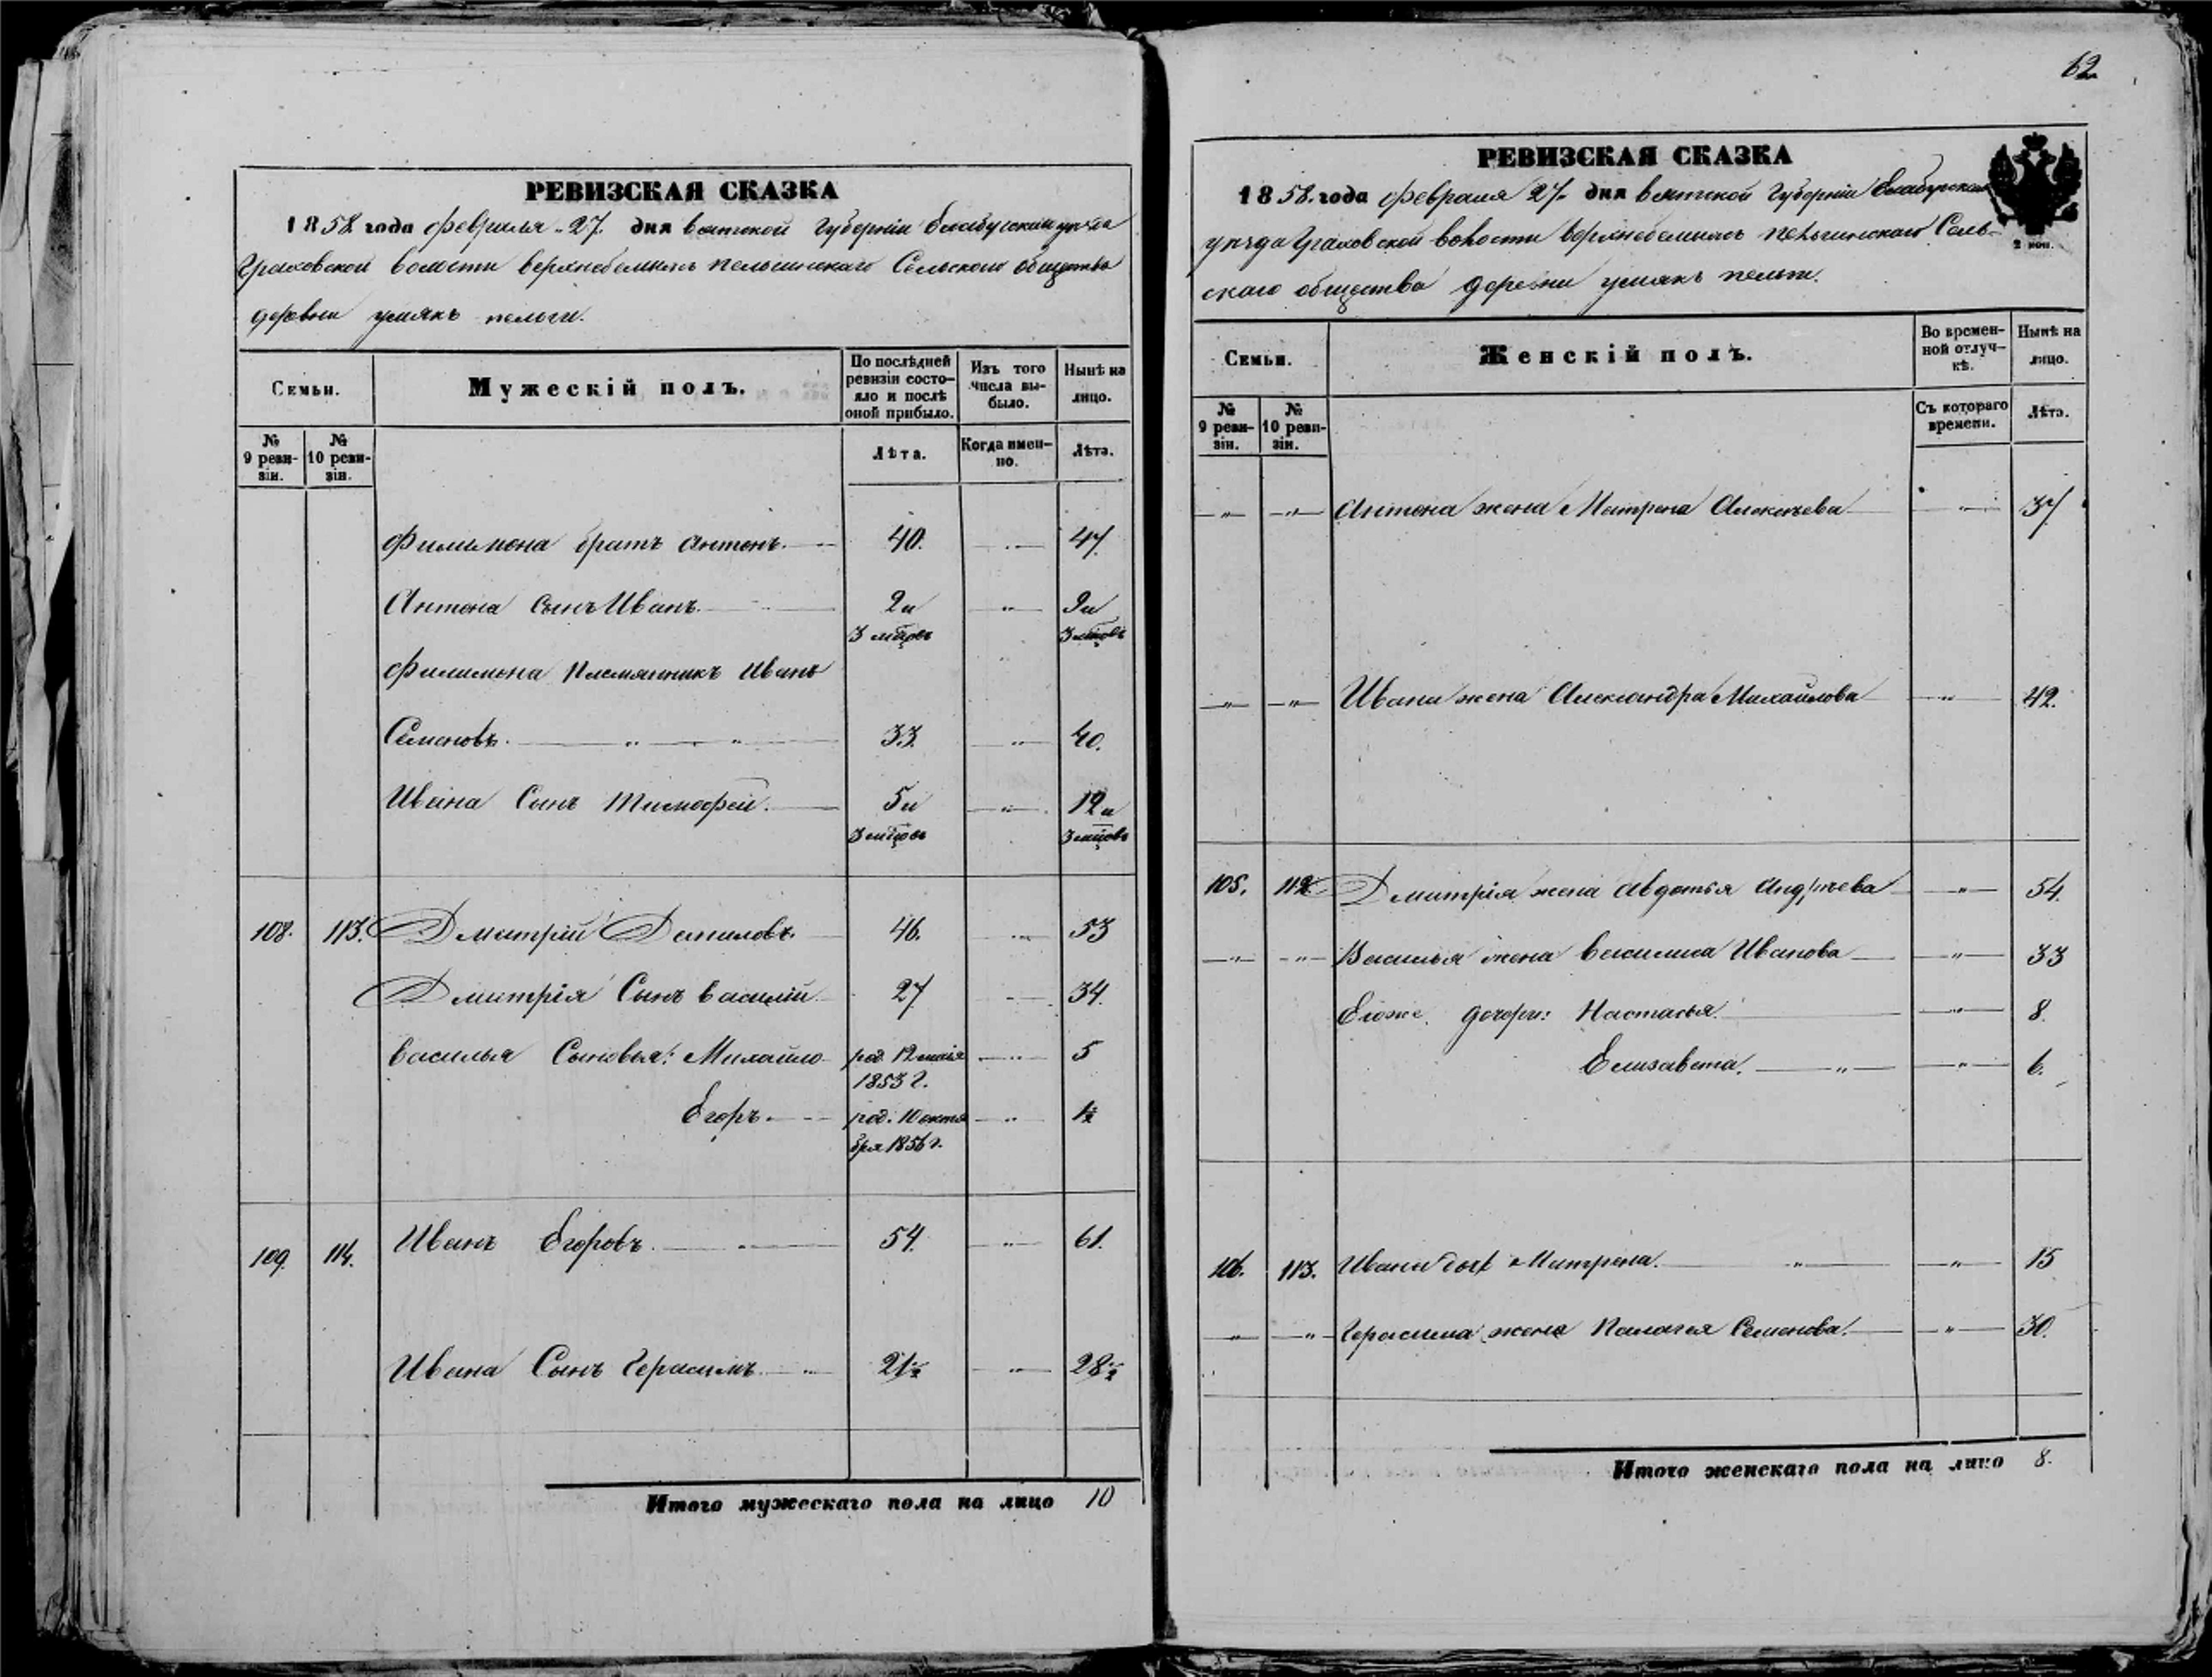 РЕВИЗСКАЯ СКАЗКА
1858 года февраля 27. дня вятской губерніи Елабугскаго уѣзда
Граховской волости верхнебемыжъ пельгинскаго Сельскаго общества
деревни умякъ пельги.
Семьи.
Мужескій полъ.
По послѣдней ревизіи состояло и послѣ оной прибыло.
Изъ того числа выбыло.
Нынѣ на лицо.
№ 9 ревизіи.
№ 10 ревизіи.
Лѣта.
Когда именно.
Лѣта.
Филимона братъ Антонъ. 40. 47.
Антона сынъ Иванъ. 2 и 9 и
3 мѣцовъ 3 мѣцовъ
Филимона Племянникъ Иванъ
Семеновъ. 33. 40.
Ивана Сынъ Тимофей. 5 и 12 и
3 мѣцовъ 3 мѣцовъ
108. 113. Дмитрій Даниловъ. 46. 53
Дмитрія Сынъ Василій. 27 34.
Василья Сыновья: Михайло род. 12 маія 5
1853 г.
Егоръ. род. 10 октя 1½
бря 1856 г.
109. 114. Иванъ Егоровъ. 54. 61.
Ивана Сынъ Герасимъ 21½ 28½
Итого мужескаго пола на лицо 10
62
РЕВИЗСКАЯ СКАЗКА
1858. года февраля 27. дня вятской Губерніи Елабугскаго
уѣзда Граховской волости верхнебемыжъ пельгинскаго Сель-
скаго общества деревни умякъ пельги.
2 коп.
Семьи.
Женскій полъ.
Во временной отлучкѣ.
Нынѣ на лицо.
№ 9 ревизіи.
№ 10 ревизіи.
Съ котораго времени.
Лѣта.
" " Антона жена Матрена Алексѣева " 37
" " Ивана жена Александра Михайлова " 42.
105. 112 Дмитрія жена Авдотья Андрѣева " 54.
" " Василья жена Василиса Иванова " 33
Ея же дочери: Настасья. " 8.
Елизавета. " " 6.
106. 113. Ивана доч Матрена. " " 15
" " Герасима жена Палагея Семенова. " 30.
Итого женскаго пола на лицо 8.